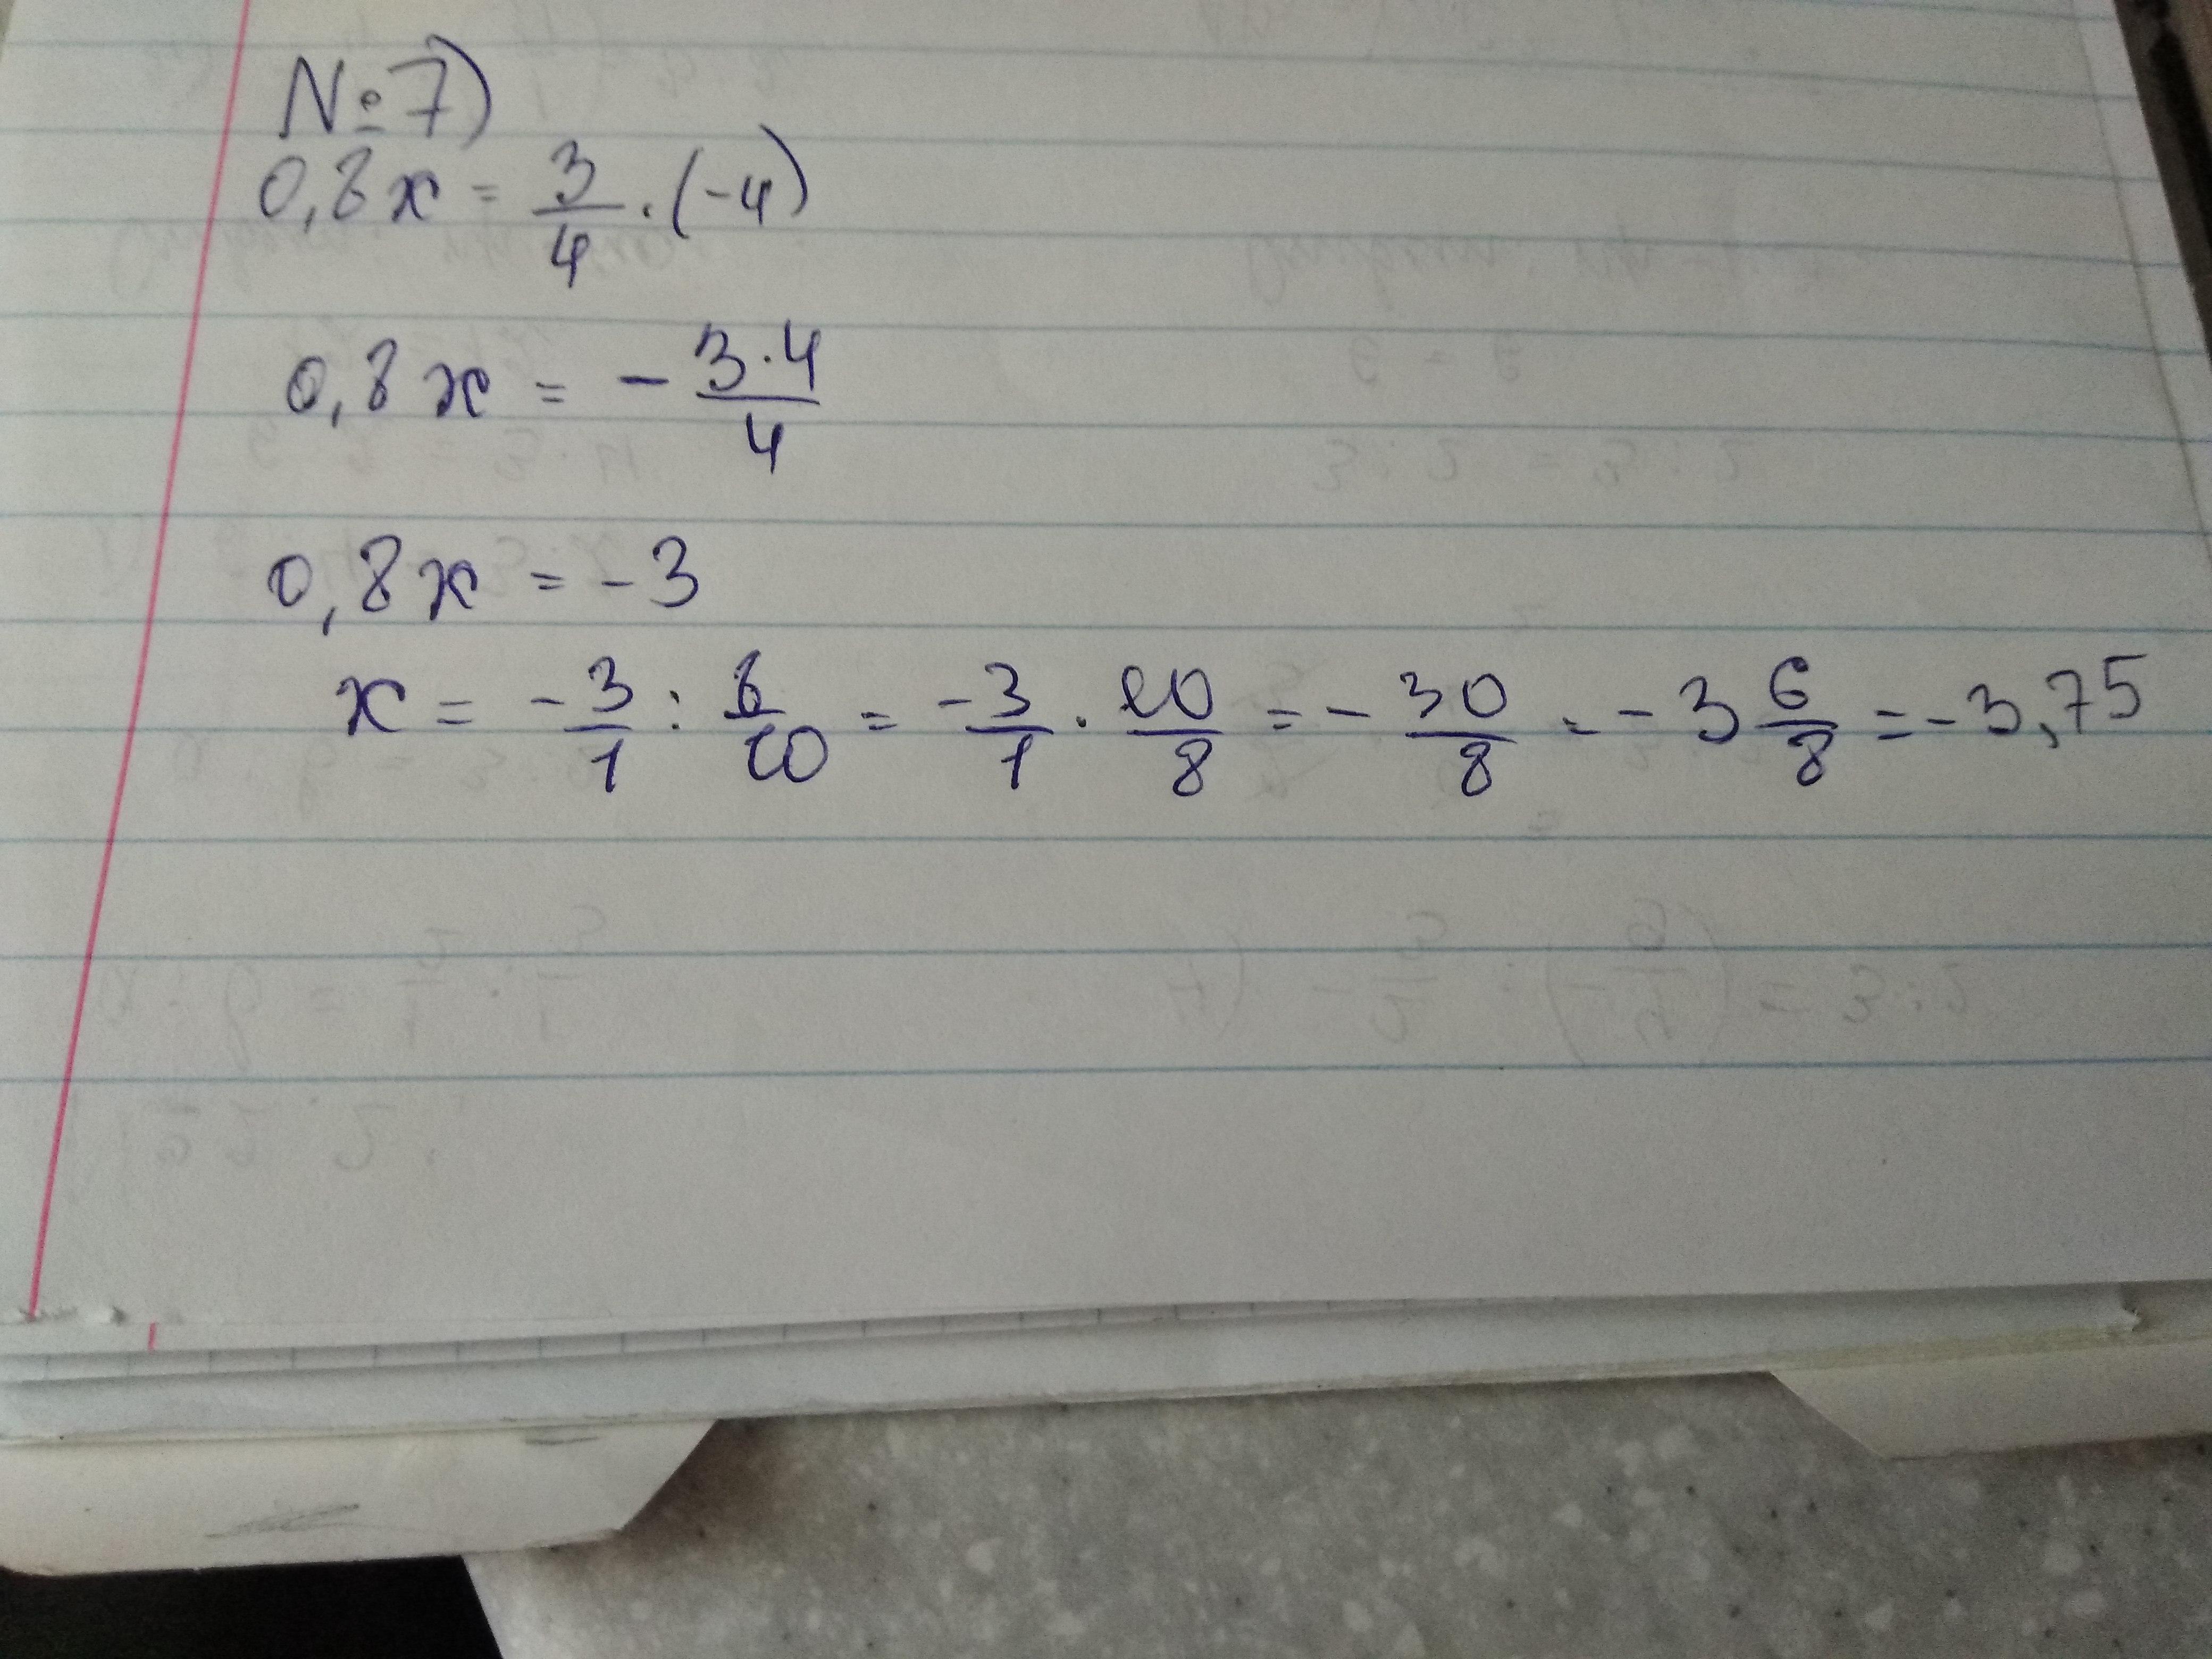 №7)
0,8x = 3/4 · (-4)
0,8x = - 3·4/4
0,8x = -3
x = -3/1 : 8/10 = -3/1 · 10/8 = - 30/8 = - 3 6/8 = - 3,75